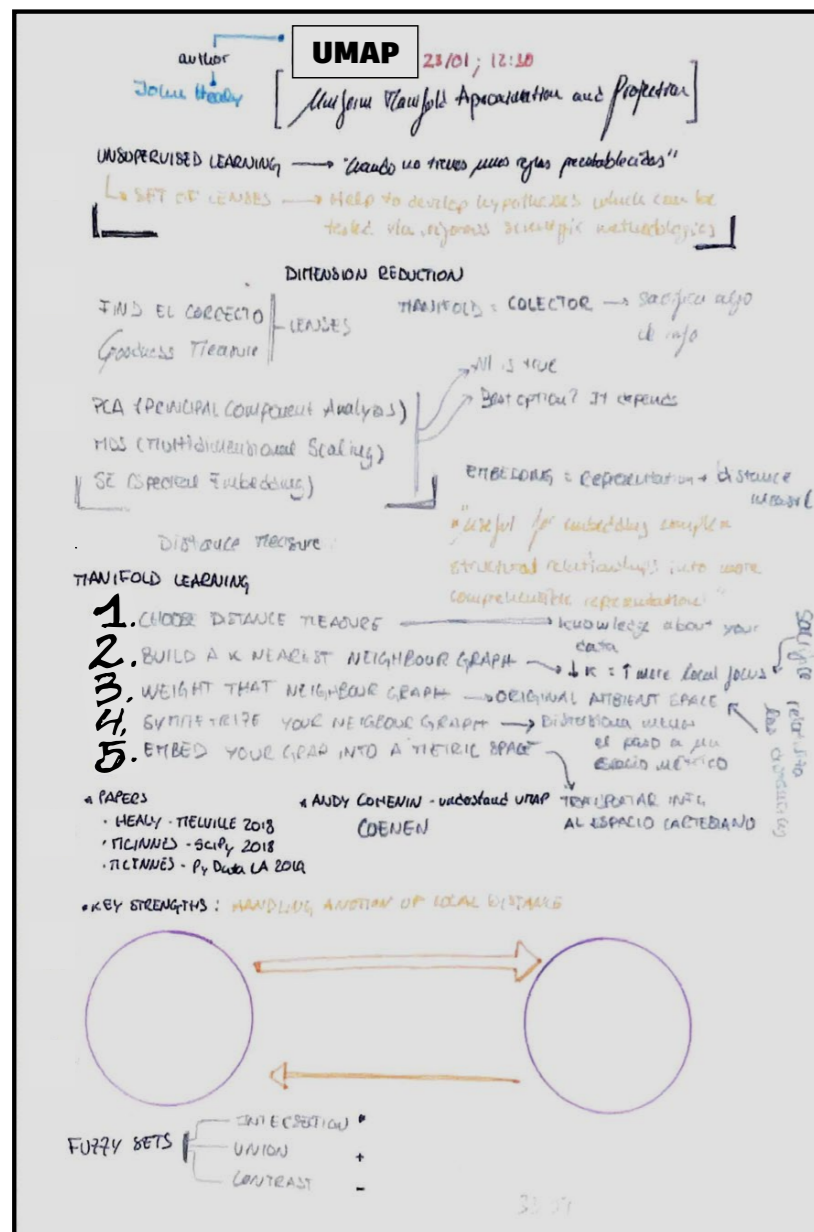 UMAP
23/01 ; 12:30
author
John Healy
[Uniform Manifold Aproximation and Projection]
UNSUPERVISED LEARNING → "Cuando no tienes unas reglas preestablecidas"
SET OF LENSES → Help to develop hypotheses which can be
tested via rigorous scientific methodologies
DIMENSION REDUCTION
FIND EL CORRECTO
Goodness Measure
LENSES
MANIFOLD = COLECTOR → sacrifica algo
de info
All is true
Best option? It depends
PCA (PRINCIPAL Component Analysis)
MDS (Multidimensional Scaling)
SE (Spectral Embedding)
EMBEDDING = Representation + distance
Distance Measure
"Useful for embedding complex
structural relationships into more
comprehensible representation"
MANIFOLD LEARNING
1. CHOOSE DISTANCE MEASURE → knowledge about your
data
2. BUILD A K NEAREST NEIGHBOUR GRAPH → ↓ K = ↑ more local focus
3. WEIGHT THAT NEIGHBOUR GRAPH → ORIGINAL AMBIENT SPACE
4. SYMMETRIZE YOUR NEIGBOUR GRAPH → Distorsiona
el paso a un
ESPACIO MÉTRICO
5. EMBED YOUR GRAP INTO A METRIC SPACE
TRANSPORTAR INFO
AL ESPACIO CARTESIANO
* PAPERS
· HEALY - MELVILLE 2018
· MCINNES - SciPy 2018
· MCINNES - Py Data LA 2019
* ANDY COHENIN - undestand UMAP
COENEN
* KEY STRENGTHS : HANDLING A NOTION OF LOCAL DISTANCE
FUZZY SETS
INTERSETION *
UNION +
CONTRAST -